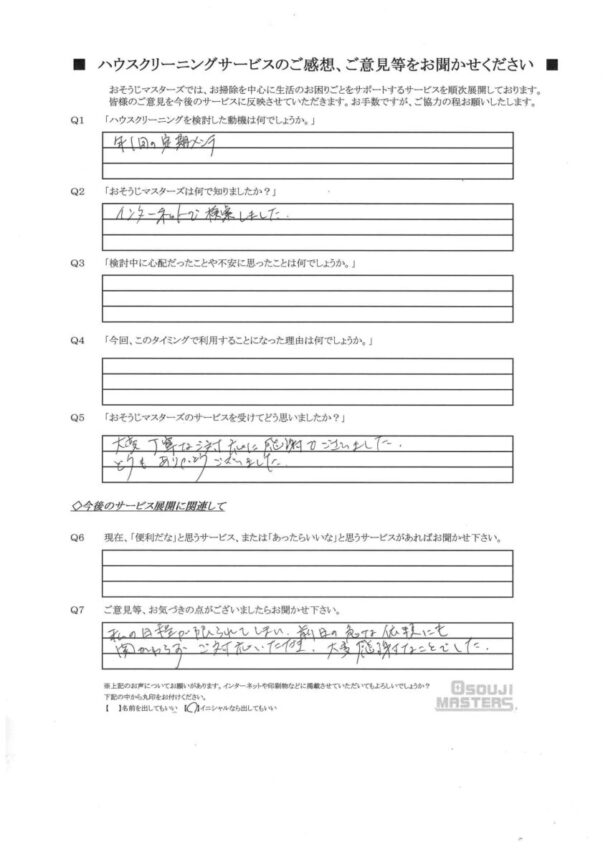 ■ ハウスクリーニングサービスのご感想、ご意見等をお聞かせください ■
おそうじマスターズでは、お掃除を中心に生活のお困りごとをサポートするサービスを順次展開しております。
皆様のご意見を今後のサービスに反映させていただきます。お手数ですが、ご協力の程お願いしたします。
Q1 「ハウスクリーニングを検討した動機は何でしょうか。」
年1回の定期メンテ
Q2 「おそうじマスターズは何で知りましたか?」
インターネットで検索しました.
Q3 「検討中に心配だったことや不安に思ったことは何でしょうか。」
Q4 「今回、このタイミングで利用することになった理由は何でしょうか。」
Q5 「おそうじマスターズのサービスを受けてどう思いましたか?」
大変丁寧な対応に感謝でございました.
とても ありがとうございました.
◇今後のサービス展開に関連して
Q6 現在、「便利だな」と思うサービス、または「あったらいいな」と思うサービスがあればお聞かせ下さい。
Q7 ご意見等、お気づきの点がございましたらお聞かせ下さい。
私の日程が限られてしまい、前日の急な依頼にも
関わらず ご対応いただき、大変感謝なことでした.
※上記のお声についてお願いがあります。インターネットや印刷物などに掲載させていただいてもよろしいでしょうか?
下記の中から丸印をお付けください。
【 】名前を出してもいい 【○】イニシャルなら出してもいい
OSOUJI
MASTERS